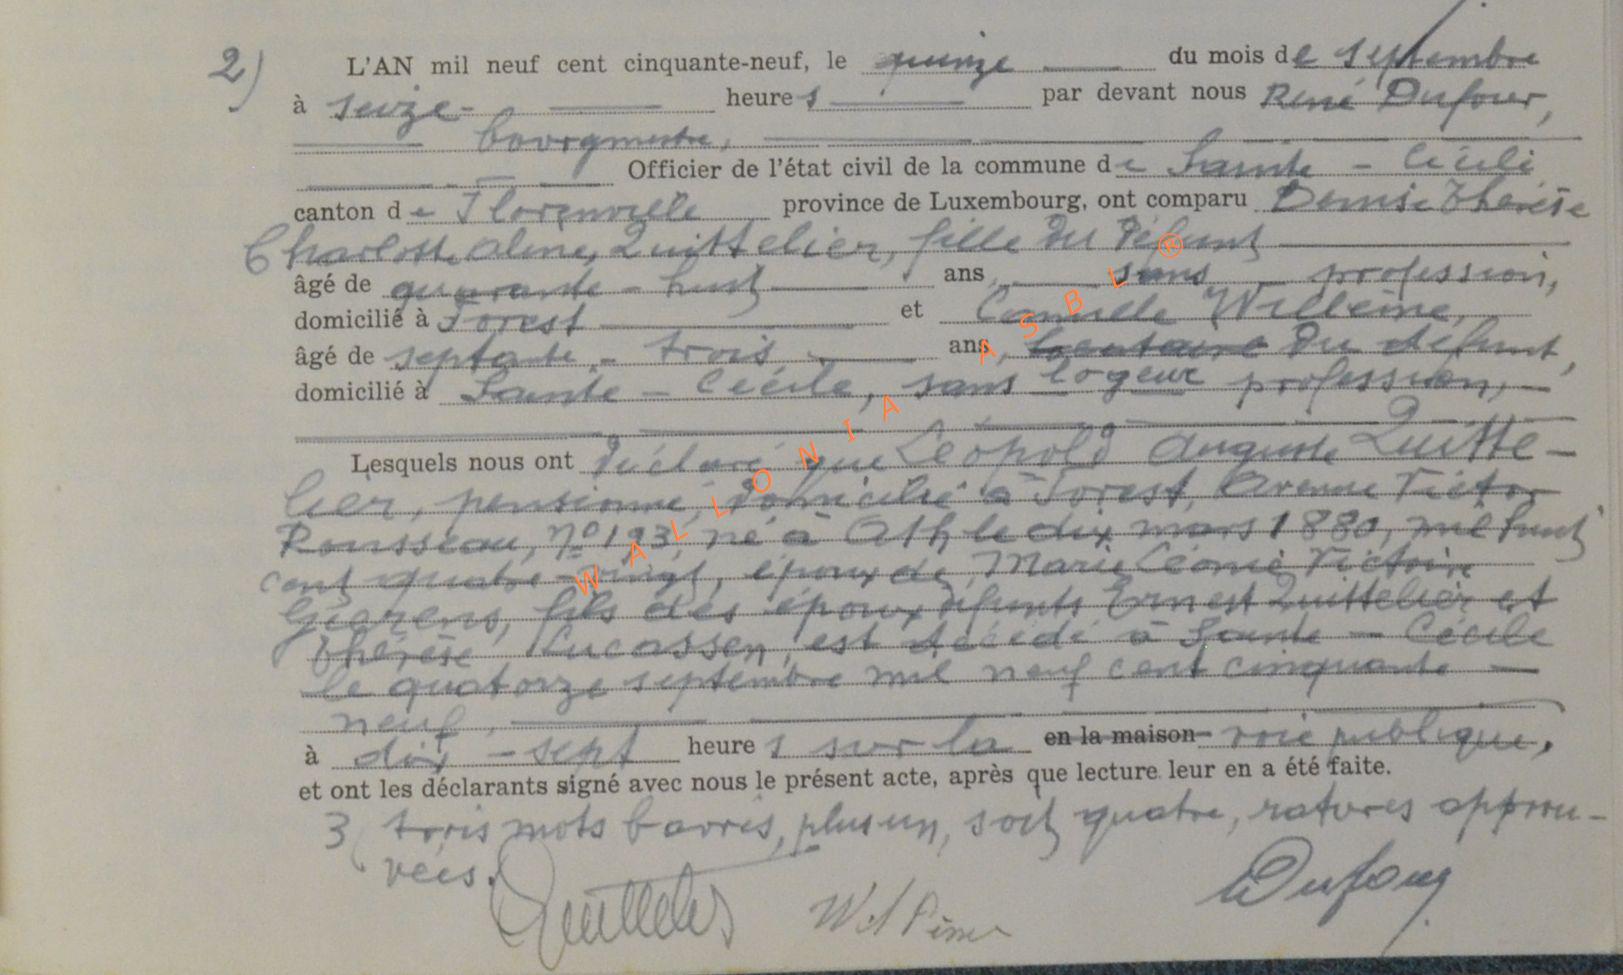 2) L'AN mil neuf cent cinquante-neuf, le quinze du mois de septembre
à seize heures par devant nous René Dufour,
bourgmestre,
Officier de l'état civil de la commune de Sainte - Cécile
canton de Florenville province de Luxembourg, ont comparu Denise Thérèse
Charlotte Aline, Quittelier, fille du défunt
âgé de quarante - huit ans, sans profession,
domicilié à Forest et Camille Willème,
âgé de septante - trois ans, locataire du défunt,
domicilié à Sainte - Cécile, sans logeur profession,
Lesquels nous ont déclaré que Léopold Auguste Quitte-
lier, pensionné, domicilié à Forest, Avenue Victor
Rousseau, n° 193, né à Ath le dix mars 1880, mil huit
cent quatre-vingt, époux de Marie Léonie Victoire
fils des époux défunts Ernest Quittelier et
Thérèse Lucassen, est décédé à Sainte - Cécile
le quatorze septembre mil neuf cent cinquante
neuf,
à dix - sept heures sur la en la maison voie publique,
et ont les déclarants signé avec nous le présent acte, après que lecture leur en a été faite.
3 trois mots barrés, plus un, soit quatre, ratures approu-
vées.
Quittelier Willème Dufour
WALLONIA ASBL ®